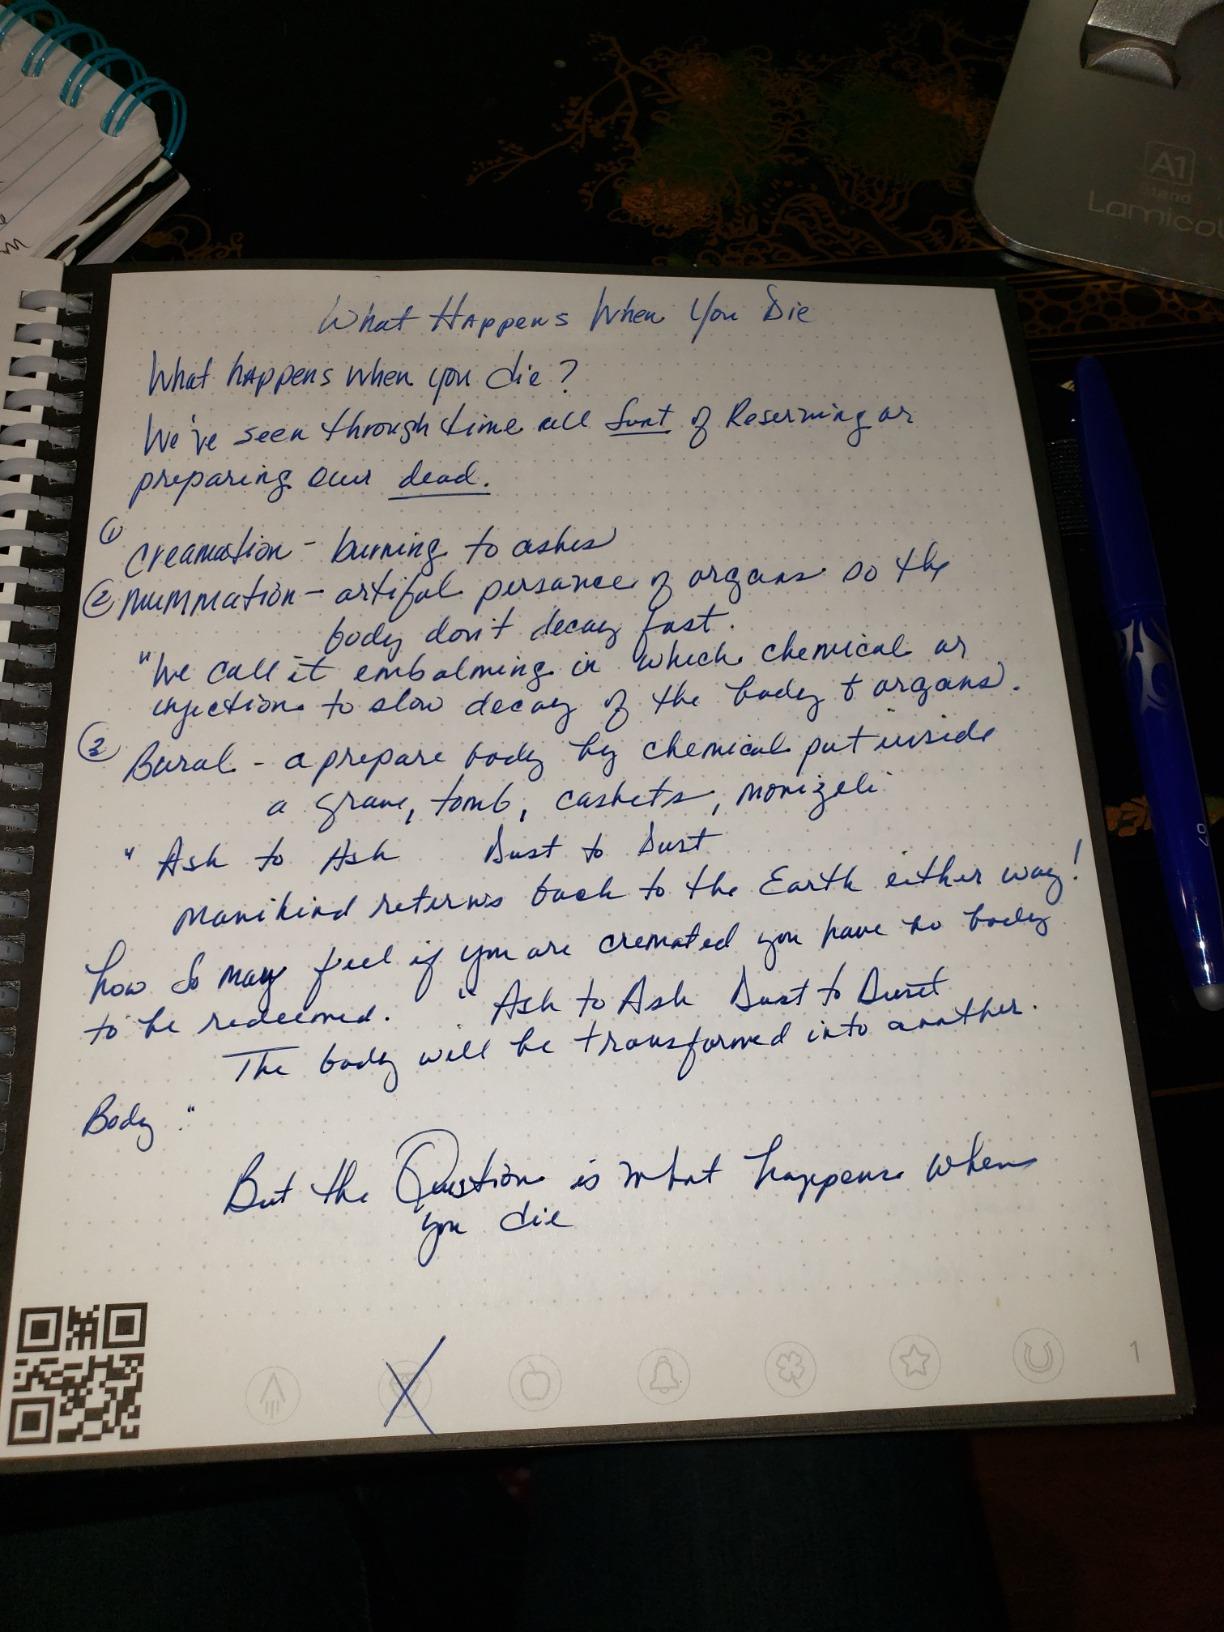 A1
Stand
Lamical
What Happens When You Die
What happens when you die?
We've seen through time all Sort of Reserming or
preparing our dead.
① Creamation - burning to ashes
② Mummation - artifal persance of organs so the
body don't decay fast.
"We call it embalming in which chemical or
injection to slow decay of the body & organs.
③ Bural - a prepare body by chemical put inside
a grave, tomb, caskets,
" Ash to Ash Dust to Dust
Manikind returns back to the Earth either way!
how So many feel if you are cremated you have no body
to be redeemed. " Ash to Ash Dust to Dust
The body will be transformed into another.
Body "
But the Question is what happens when
you die
1
07